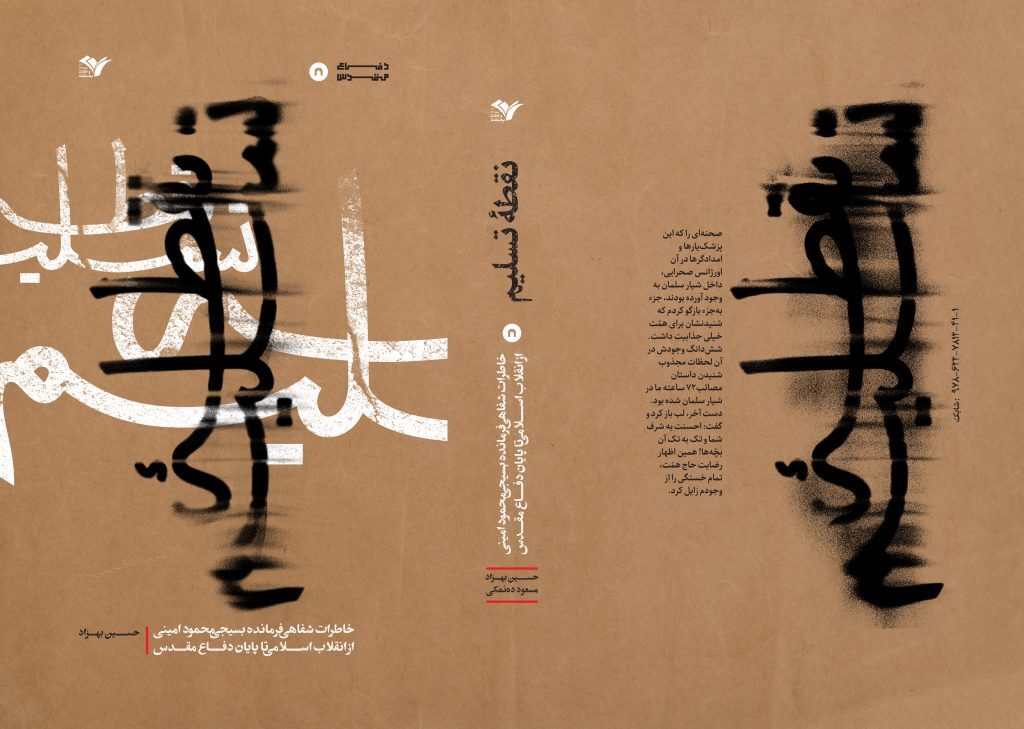 دفاع
مقدس
۸
نقطهٔ تسلیم
خاطرات شفاهی فرمانده بسیجی محمود امینی
از انقلاب اسلامی تا پایان دفاع مقدس
حسین بهزاد
نقطهٔ تسلیم
۸
خاطرات شفاهی فرمانده بسیجی محمود امینی
از انقلاب اسلامی تا پایان دفاع مقدس
حسین بهزاد
مسعود ده‌نمکی
نقطهٔ تسلیم
صحنه‌ای را که این
پزشک‌یارها و
امدادگرها در آن
اورژانس صحرایی،
داخل شیار سلمان به
وجود آورده بودند، جزء
به‌جزء بازگو کردم که
شنیدنشان برای همت
خیلی جذابیت داشت.
شش‌دانگ وجودش در
آن لحظات مجذوب
شنیدن داستان
مصائب ۷۲ ساعته ما در
شیار سلمان شده بود.
دست آخر، لب باز کرد و
گفت: احسنت به شرف
شما و تک به تک آن
بچّه‌ها! همین اظهار
رضایت حاج همّت،
تمام خستگی را از
وجودم زایل کرد.
شابک: ۹۷۸-۶۲۲-۷۸۱۲-۴۱-۱